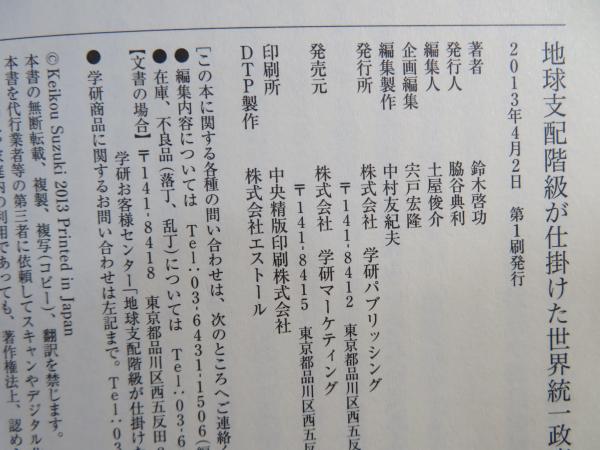 地球支配階級が仕掛けた世界統一政
2013年4月2日　第1刷発行
著者　鈴木啓功
発行人　脇谷典利
編集人　土屋俊介
企画編集　宍戸宏隆
編集製作　中村友紀夫
発行所　株式会社　学研パブリッシング
〒141-8412　東京都品川区西五反
発売元　株式会社　学研マーケティング
〒141-8415　東京都品川区西五反
印刷所　中央精版印刷株式会社
DTP製作　株式会社エストール
［この本に関する各種の問い合わせは、次のところへご連絡く
●編集内容については　Tel:03-6431-1506(編
●在庫、不良品(落丁、乱丁)については　Tel:03-6
【文書の場合】〒141-8418　東京都品川区西五反田2
学研お客様センター「地球支配階級が仕掛けた
●学研商品に関するお問い合わせは左記まで。Tel:03
©Keikou Suzuki 2013 Printed in Japan
本書の無断転載、複製、複写(コピー)、翻訳を禁じます。
本書を代行業者等の第三者に依頼してスキャンやデジタル化
家庭内の利用であっても、著作権法上、認め